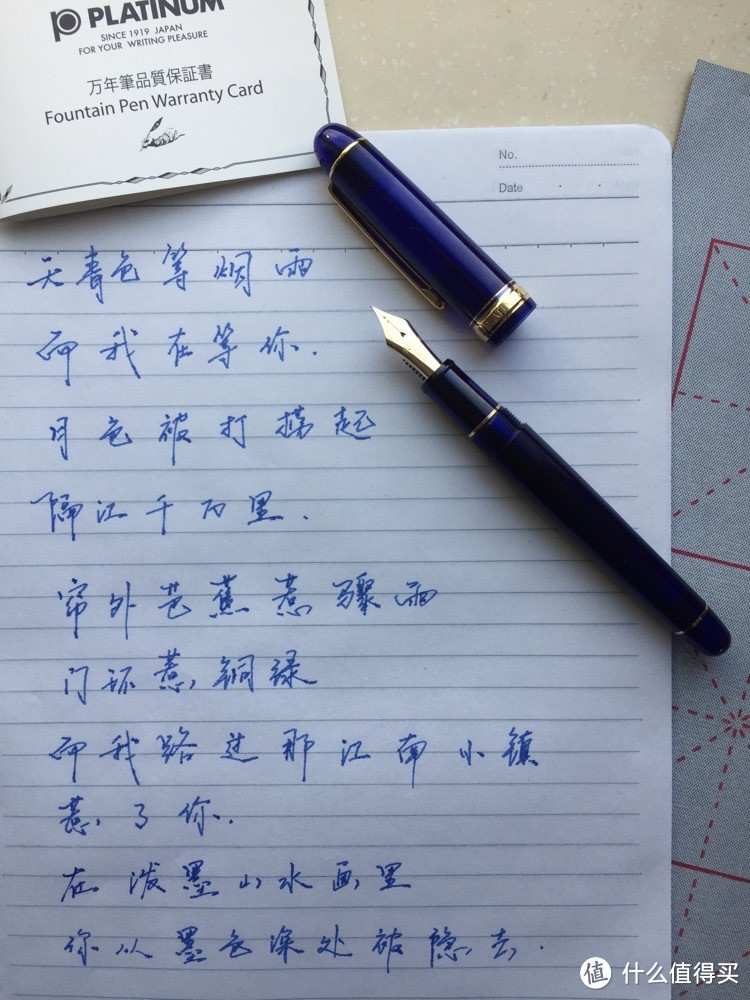 PLATINUM
SINCE 1919 JAPAN
FOR YOUR WRITING PLEASURE
万年筆品質保証書
Fountain Pen Warranty Card
No.
Date
天青色等烟雨
而我在等你.
月色被打捞起
隔江千万里.
帘外芭蕉惹骤雨
门环惹铜绿
而我路过那江南小镇
惹了你.
在泼墨山水画里
你从墨色深处被隐去.
值 什么值得买